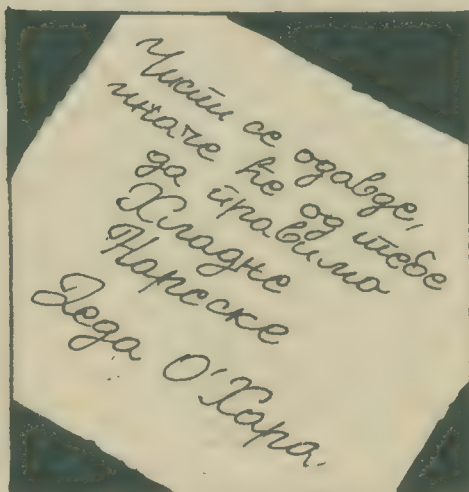 Чисти се одавде,
иначе ће од тебе
да правимо
Хладне
Нареске
Деда О'Хара.